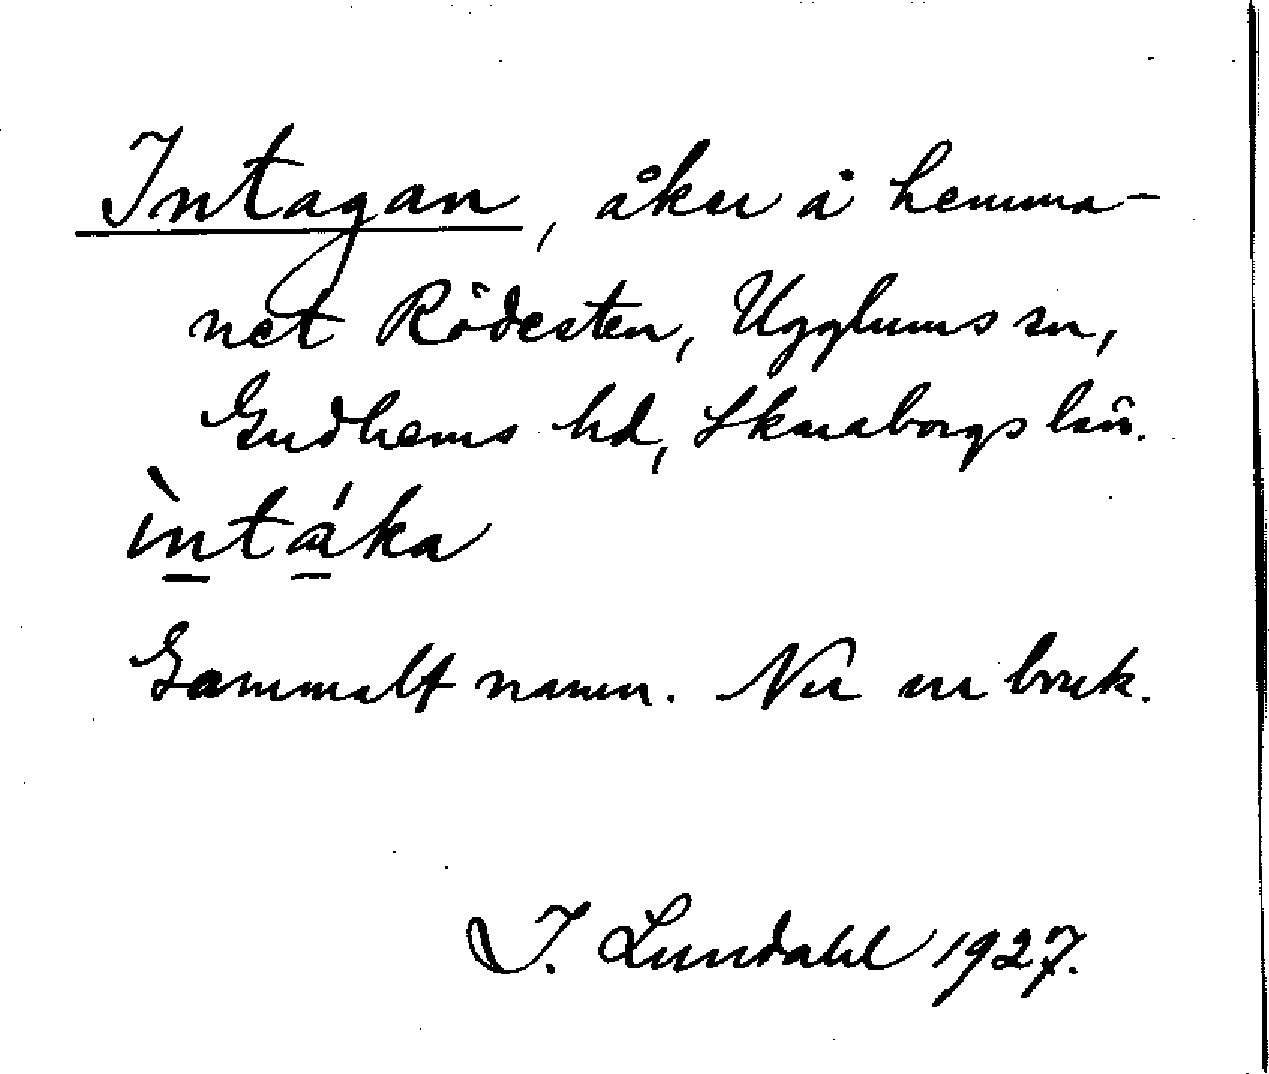 Intagan, åker å hemma-
net Rödesten, Ugglums sn,
Gudhems hd, Skaraborgs län.
ìntáka
Gammalt namn. Nu ur bruk.
I. Lundahl 1927.